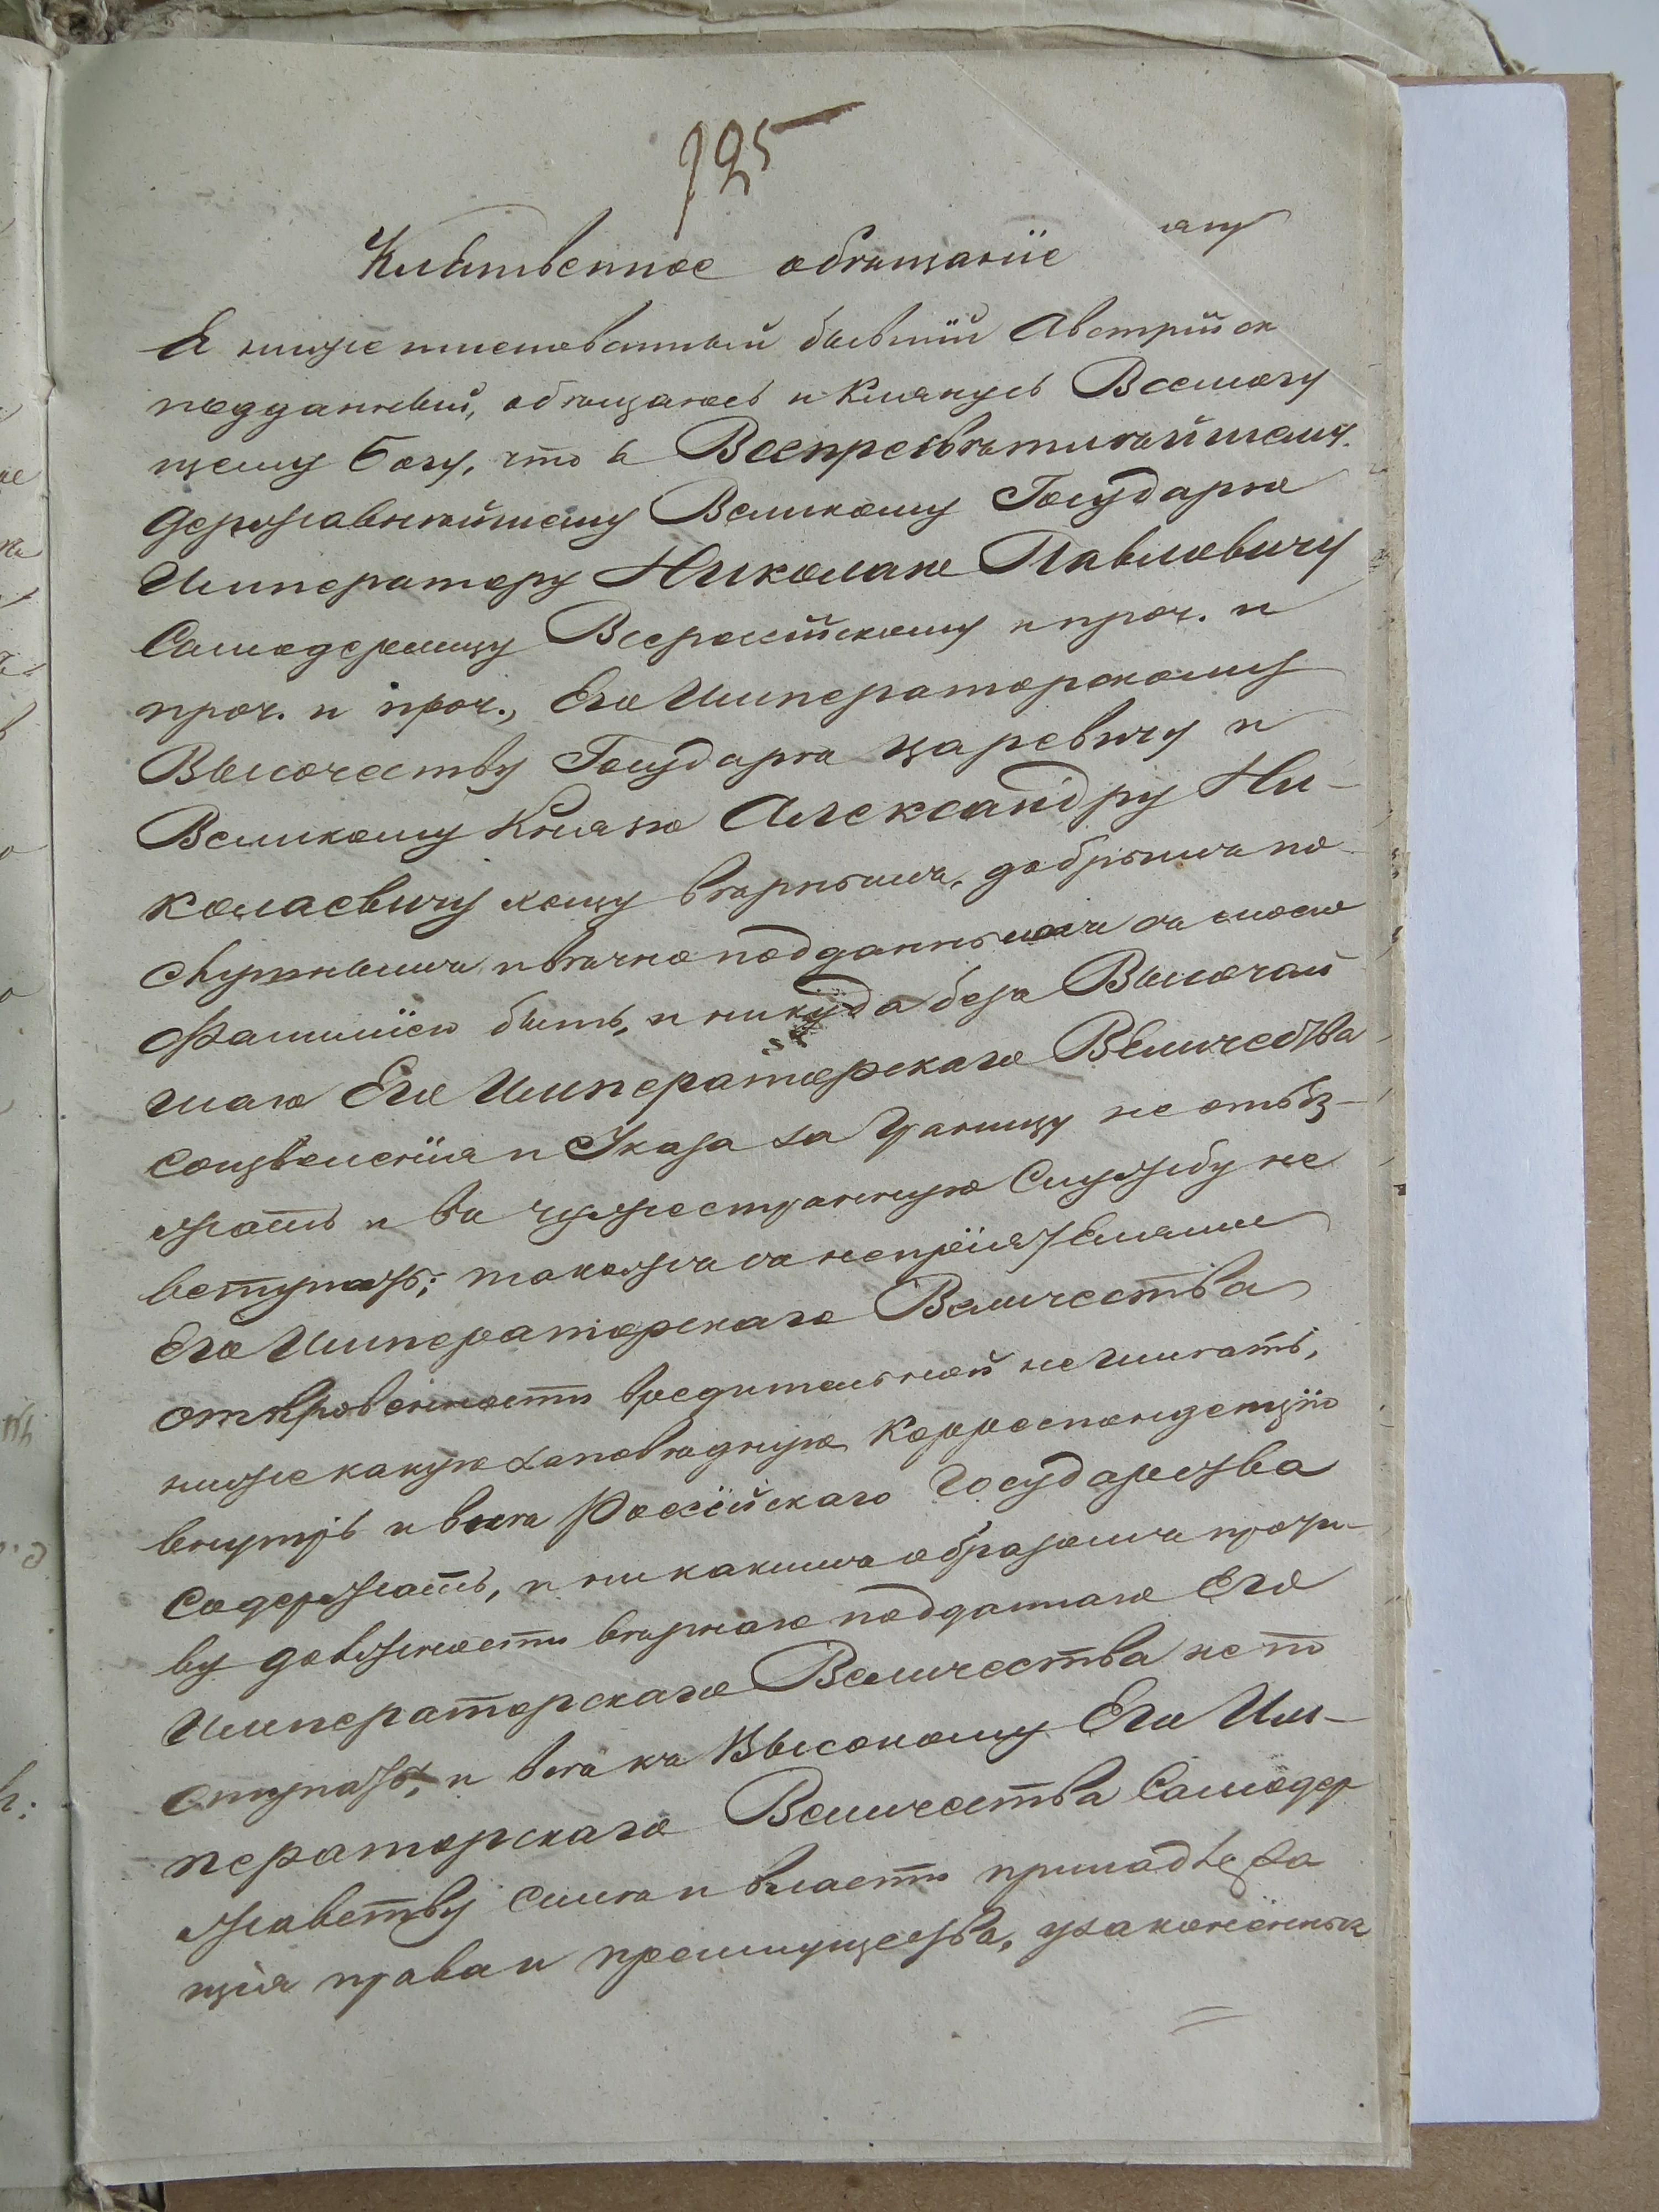 725
Клятвенное обѣщаніе
Я нижеименованный бывшій Австрійск
подданный, обѣщаюсь и клянусь Всемогу
щему Богу, что я Всепресвѣтлѣйшему.
Державнѣйшему Великому Государю
Императору Николаю Павловичу
Самодержцу Всероссійскому и проч. и
проч. и проч., Его Императорскому
Высочеству Государю царевичу и
Великому Князю Александру Ни-
колаевичу хощу вѣрнымъ, добрымъ по
слушнымъ и вѣчно подданнымъ съ моею
фамиліею быть, и никуда безъ Высочай
шаго Его Императорскаго Величества
соизволенія и Указа за границу не отъѣз-
жать и въ чужестранную Службу не
вступать; такожъ съ непріятелями
Его Императорскаго Величества
откровенности вредительной не имѣть,
ниже какую заповѣдную корреспонденцію
внутрь и внѣ Россійскаго Государства
содержать, и никакимъ образомъ проти-
ву должности вѣрнаго подданнаго Его
Императорскаго Величества не по
ступать, и всѣ къ Высокому Его Им-
ператорскаго Величества Самодер
жавству силѣ и власти принадлежа
щія права и преимущества, узаконенныя